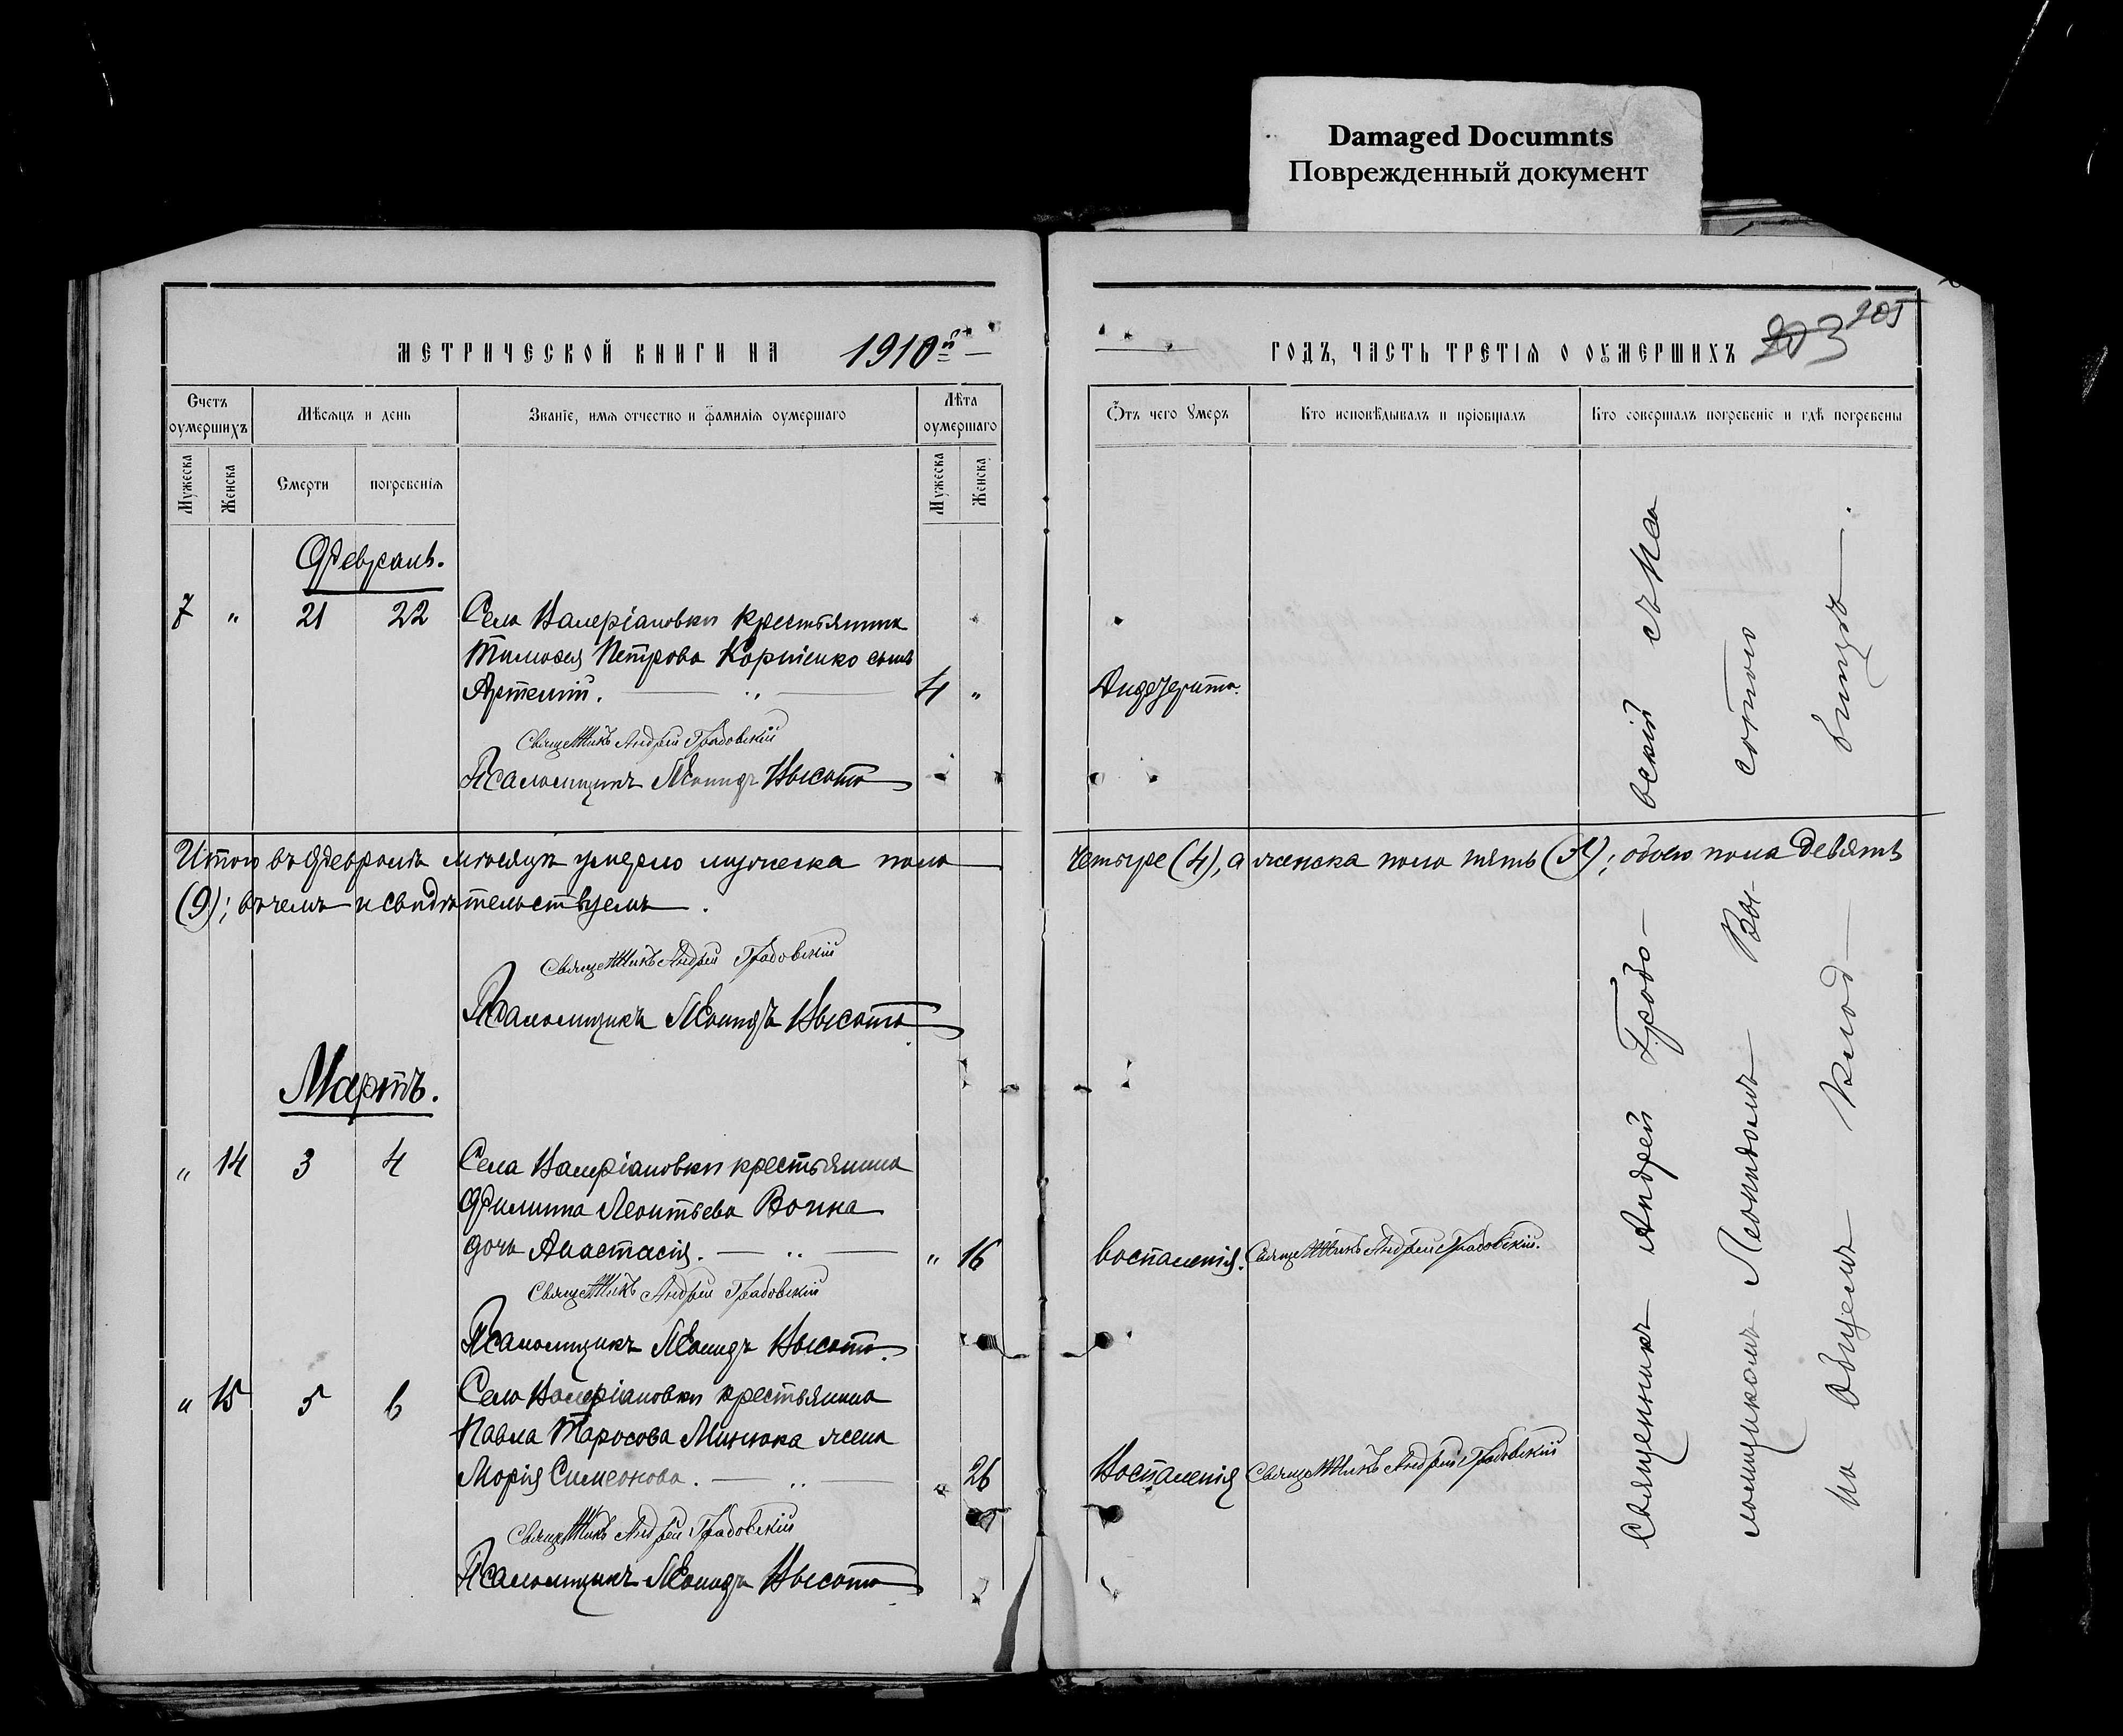 Damaged Documnts
Поврежденный документ
МЕТРИЧЕСКОЙ КНИГИ НА 1910й
ГОДЪ, ЧАСТЬ ТРЕТІЯ О ОУМЕРШИХЪ 203 205
Счетъ оумершихъ
Мѣсяцъ и день
Званіе, имя отчество и фамилія оумершаго
Лѣта оумершаго
Отъ чего Умеръ
Кто исповѣдывалъ и пріобщалъ
Кто совершалъ погребеніе и гдѣ погребены
Мужеска
Женска
Смерти
погребенія
Мужеска
Женска
Февраль.
7 " 21 22 Села Валеріановки крестьянина
Тимофея Петрова Корніенко сынъ
Артемій. 4 "
Священникъ Андрей Градовскій
Псаломщикъ Леонидъ Высота
Итого въ Февралѣ мѣсяцѣ умерло мужеска пола четыре (4), а женска пола пять (5); обоего пола девять
(9); въ чемъ и свидѣтельствуемъ.
Священникъ Андрей Градовскій
Псаломщикъ Леонидъ Высота
Мартъ.
" 14 3 4 Села Валеріановки крестьянина
Филиппа Леонтьева
дочь Анастасія. " 16 Воспаленія. Священникъ Андрей Градовскій.
Священникъ Андрей Градовскій
Псаломщикъ Леонидъ Высота.
" 15 5 6 Села Валеріановки крестьянина
Павла Тарасова Минюка жена
Марія Симеонова. " 26 Воспаленія Священникъ Андрей Градовскій
Священникъ Андрей Градовскій
Псаломщикъ Леонидъ Высота
Священникъ Андрей Градовскій съ Пса
ломщикомъ Леонидомъ Высотою
на общемъ кладбищѣ.